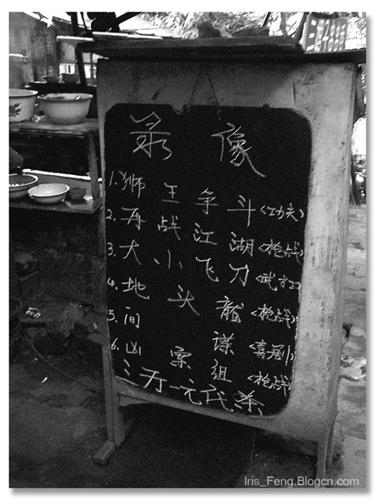 录像
1. 狮王争斗<功夫>
2. 再战江湖<枪战>
3. 大小飞刀<武打>
4. 地头龍<枪战>
5. 间谍<喜剧>
6. 凶案组<枪战>
一元代茶
Iris_Feng.Blogcn.com